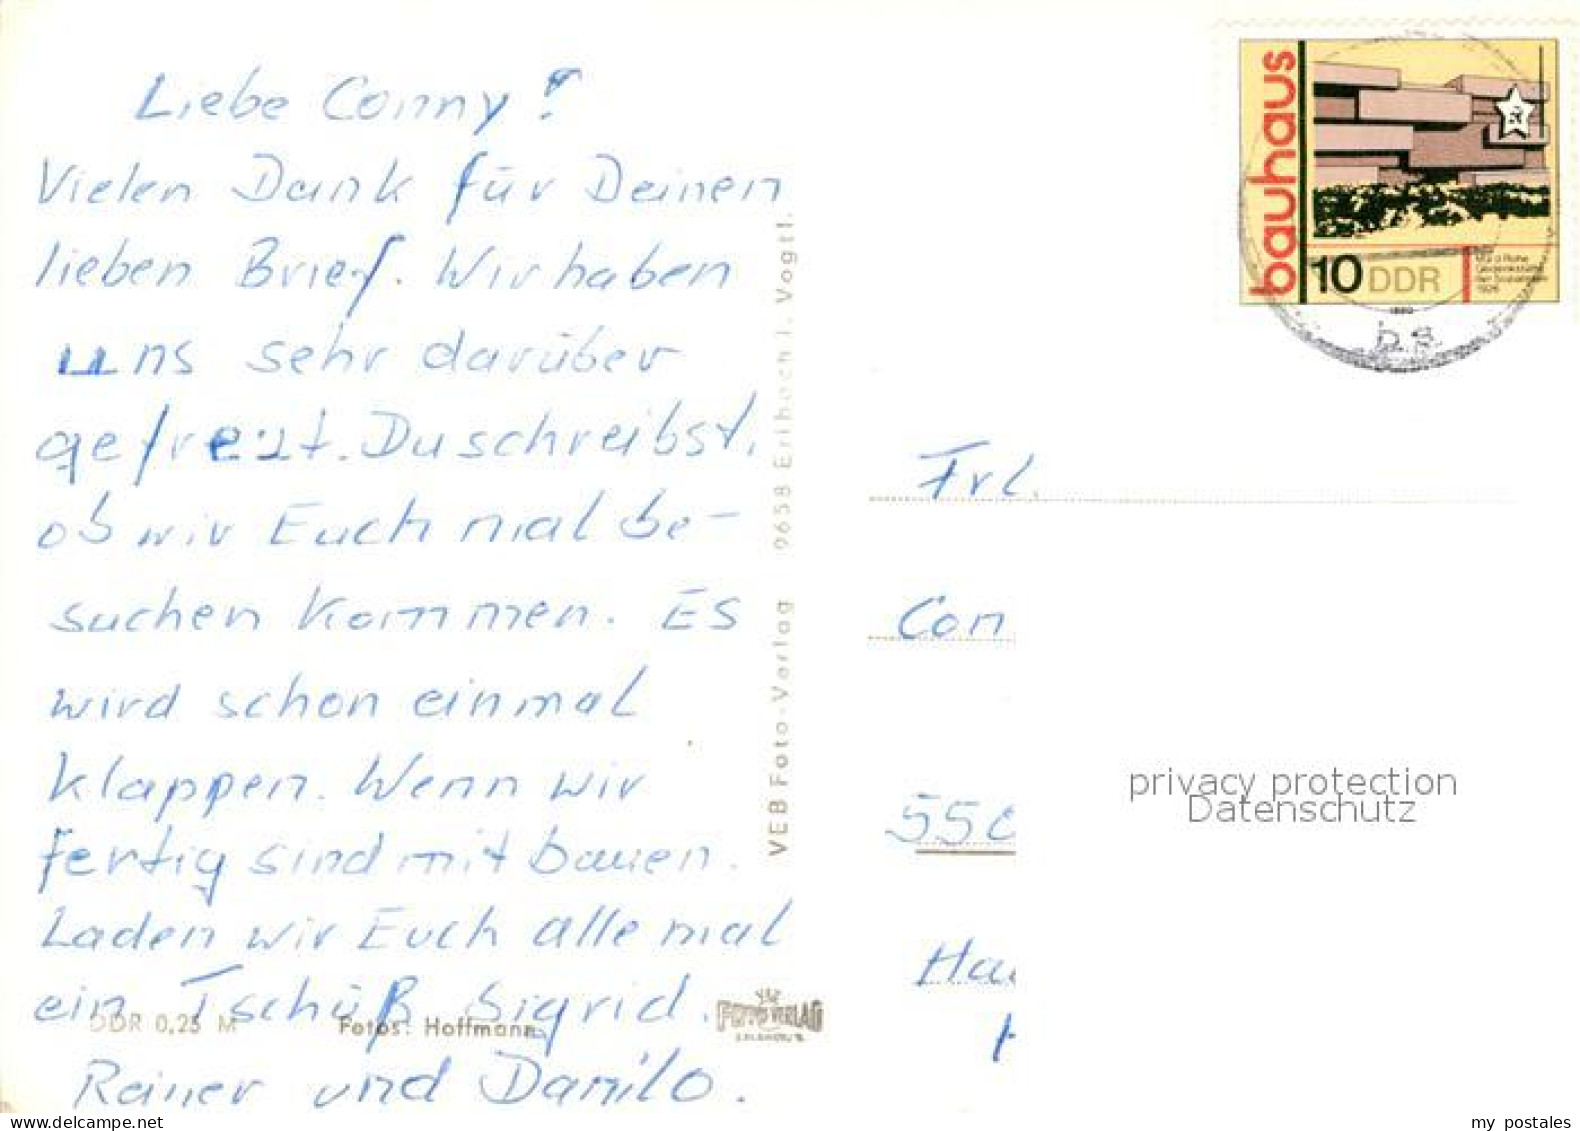 Liebe Conny!
Vielen Dank für Deinen
lieben Brief. Wir haben
uns sehr darüber
gefreut. Du schreibst,
ob wir Euch mal be-
suchen kommen. Es
wird schon einmal
klappen. Wenn wir
fertig sind mit bauen.
Laden wir Euch alle mal
ein Tschüß Sigrid.
Rainer und Danilo.
DDR 0,25 M Fotos: Hoffmann
FOTO VERLAG
VEB Foto-Verlag 9658 Erlbach i. Vogtl.
bauhaus
10 DDR
1980
Frl.
Con
550
Hau
privacy protection
Datenschutz
my postales